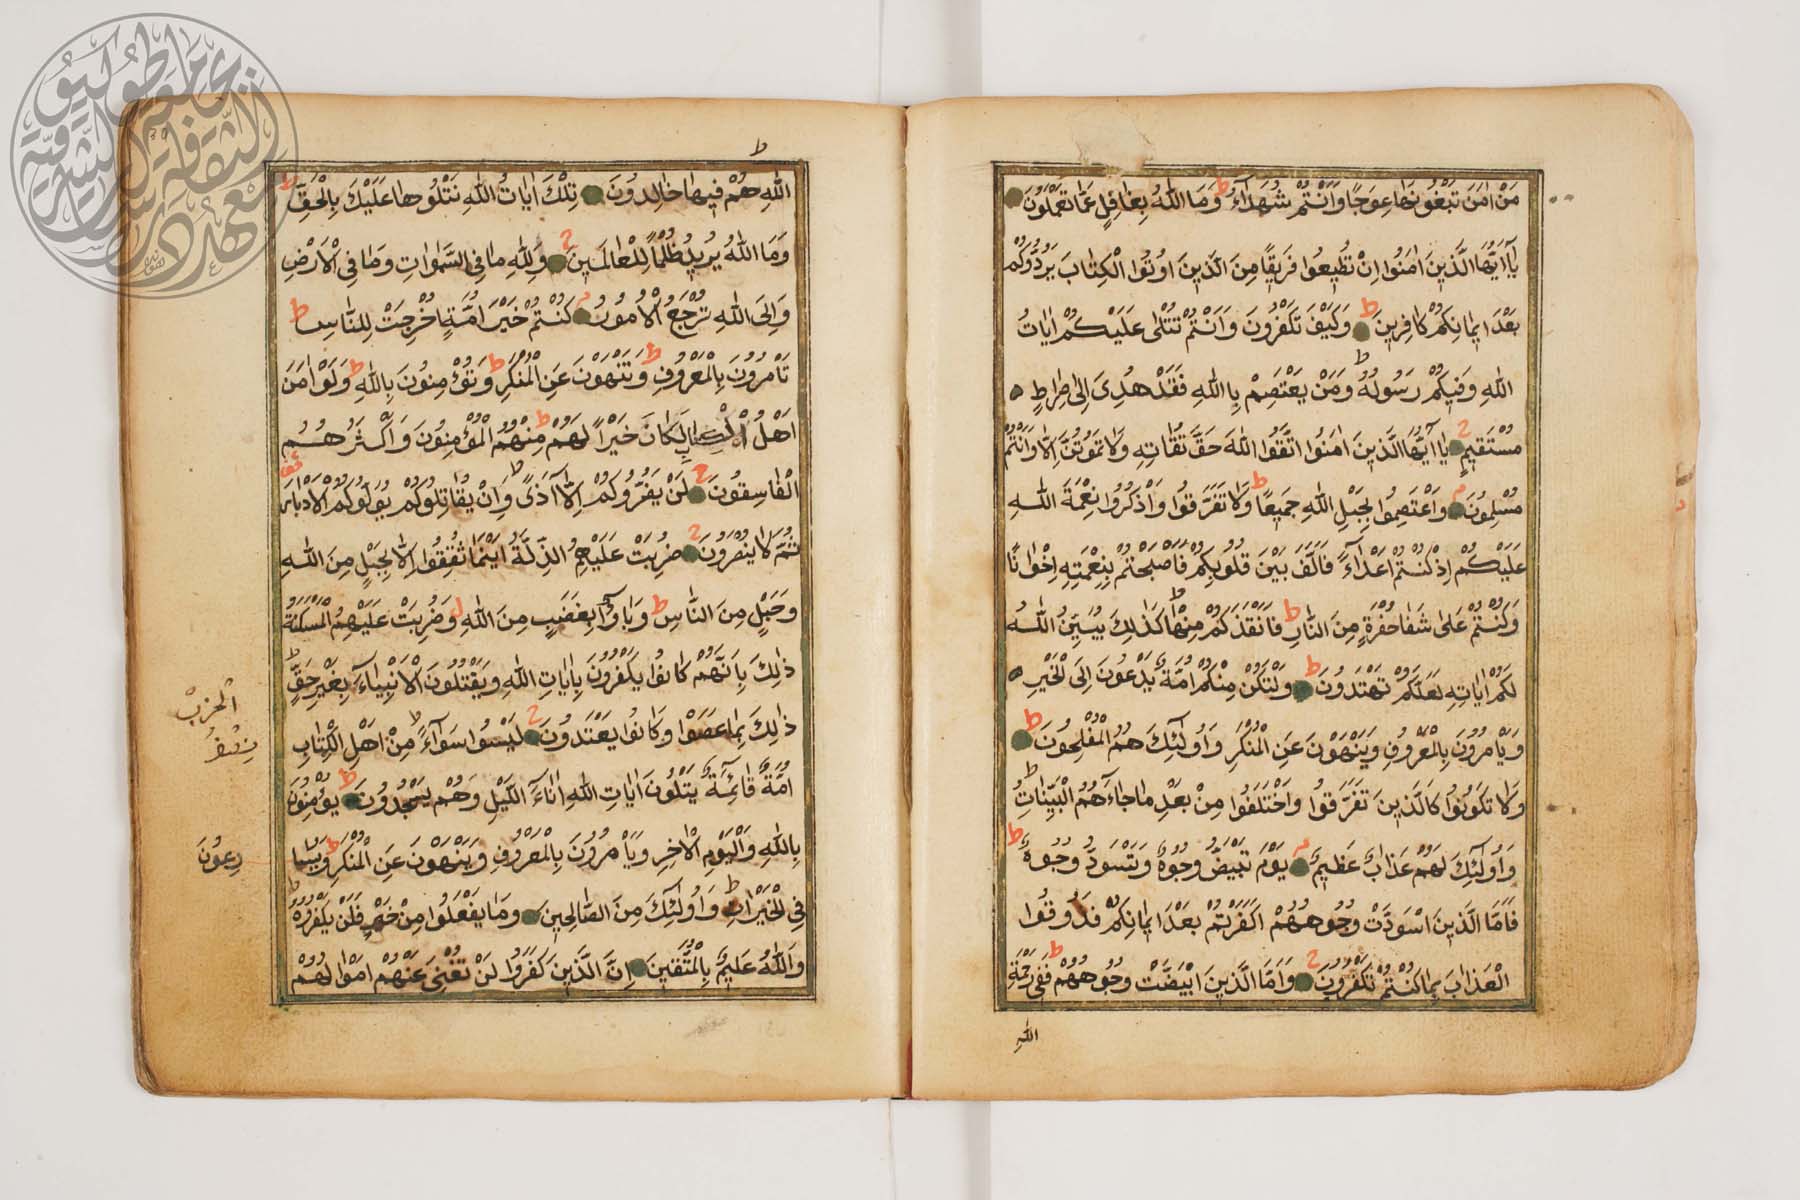 مَنْ اٰمَنَ تَبْغُونَهَا عِوَجًا وَاَنْتُمْ شُهَدَٓاءُ ط وَمَا اللّٰهُ بِغَافِلٍ عَمَّا تَعْمَلُونَ
يَٓا اَيُّهَا الَّذِينَ اٰمَنُوا اِنْ تُطِيعُوا فَرِيقًا مِنَ الَّذِينَ اُوتُوا الْكِتَابَ يَرُدُّوكُمْ
بَعْدَ اِيمَانِكُمْ كَافِرِينَ ط وَكَيْفَ تَكْفُرُونَ وَاَنْتُمْ تُتْلٰى عَلَيْكُمْ اٰيَاتُ
اللّٰهِ وَفِيكُمْ رَسُولُهُ ط وَمَنْ يَعْتَصِمْ بِاللّٰهِ فَقَدْ هُدِىَ اِلٰى صِرَاطٍ
مُسْتَقِيمٍ ح يَٓا اَيُّهَا الَّذِينَ اٰمَنُوا اتَّقُوا اللّٰهَ حَقَّ تُقَاتِهِ وَلَا تَمُوتُنَّ اِلَّا وَاَنْتُمْ
مُسْلِمُونَ م وَاعْتَصِمُوا بِحَبْلِ اللّٰهِ جَمِيعًا وَلَا تَفَرَّقُوا ط وَاذْكُرُوا نِعْمَةَ اللّٰهِ
عَلَيْكُمْ اِذْ كُنْتُمْ اَعْدَٓاءً فَاَلَّفَ بَيْنَ قُلُوبِكُمْ فَاَصْبَحْتُمْ بِنِعْمَتِهِ اِخْوَانًا
وَكُنْتُمْ عَلٰى شَفَا حُفْرَةٍ مِنَ النَّارِ ط فَاَنْقَذَكُمْ مِنْهَا ط كَذٰلِكَ يُبَيِّنُ اللّٰهُ
لَكُمْ اٰيَاتِهِ لَعَلَّكُمْ تَهْتَدُونَ ط وَلْتَكُنْ مِنْكُمْ اُمَّةٌ يَدْعُونَ اِلَى الْخَيْرِ
وَيَأْمُرُونَ بِالْمَعْرُوفِ وَيَنْهَوْنَ عَنِ الْمُنْكَرِ وَاُولٰٓئِكَ هُمُ الْمُفْلِحُونَ ط
وَلَا تَكُونُوا كَالَّذِينَ تَفَرَّقُوا وَاخْتَلَفُوا مِنْ بَعْدِ مَا جَٓاءَهُمُ الْبَيِّنَاتُ ط
وَاُولٰٓئِكَ لَهُمْ عَذَابٌ عَظِيمٌ م يَوْمَ تَبْيَضُّ وُجُوهٌ وَتَسْوَدُّ وُجُوهٌ ط
فَاَمَّا الَّذِينَ اسْوَدَّتْ وُجُوهُهُمْ اَكَفَرْتُمْ بَعْدَ اِيمَانِكُمْ فَذُوقُوا
الْعَذَابَ بِمَا كُنْتُمْ تَكْفُرُونَ ح وَاَمَّا الَّذِينَ ابْيَضَّتْ وُجُوهُهُمْ فَفِى رَحْمَةِ ط
اللّٰهِ
ط
اللّٰهِ هُمْ فِيهَا خَالِدُونَ تِلْكَ اٰيَاتُ اللّٰهِ نَتْلُوهَا عَلَيْكَ بِالْحَقِّ ط
وَمَا اللّٰهُ يُرِيدُ ظُلْمًا لِلْعَالَمِينَ ح وَلِلّٰهِ مَا فِى السَّمٰوَاتِ وَمَا فِى الْاَرْضِ
وَاِلَى اللّٰهِ تُرْجَعُ الْاُمُورُ م كُنْتُمْ خَيْرَ اُمَّةٍ اُخْرِجَتْ لِلنَّاسِ ط
تَأْمُرُونَ بِالْمَعْرُوفِ ط وَتَنْهَوْنَ عَنِ الْمُنْكَرِ ط وَتُؤْمِنُونَ بِاللّٰهِ ط وَلَوْ اٰمَنَ
اَهْلُ الْكِتَابِ لَكَانَ خَيْرًا لَهُمْ ط مِنْهُمُ الْمُؤْمِنُونَ وَاَكْثَرُهُمُ
الْفَاسِقُونَ ح لَنْ يَضُرُّوكُمْ اِلَّٓا اَذًى ط وَاِنْ يُقَاتِلُوكُمْ يُوَلُّوكُمُ الْاَدْبَارَ
ثُمَّ لَا يُنْصَرُونَ ح ضُرِبَتْ عَلَيْهِمُ الذِّلَّةُ اَيْنَمَا ثُقِفُوا اِلَّا بِحَبْلٍ مِنَ اللّٰهِ
وَحَبْلٍ مِنَ النَّاسِ ط وَبَاؤُٓا بِغَضَبٍ مِنَ اللّٰهِ وَضُرِبَتْ عَلَيْهِمُ الْمَسْكَنَةُ
ذٰلِكَ بِاَنَّهُمْ كَانُوا يَكْفُرُونَ بِاٰيَاتِ اللّٰهِ وَيَقْتُلُونَ الْاَنْبِيَٓاءَ بِغَيْرِ حَقٍّ ط
ذٰلِكَ بِمَا عَصَوْا وَكَانُوا يَعْتَدُونَ ح لَيْسُوا سَوَٓاءً ط مِنْ اَهْلِ الْكِتَابِ
اُمَّةٌ قَٓائِمَةٌ يَتْلُونَ اٰيَاتِ اللّٰهِ اٰنَٓاءَ الَّيْلِ وَهُمْ يَسْجُدُونَ ط يُؤْمِنُونَ
بِاللّٰهِ وَالْيَوْمِ الْاٰخِرِ وَيَأْمُرُونَ بِالْمَعْرُوفِ وَيَنْهَوْنَ عَنِ الْمُنْكَرِ ط وَيُسَا
رِعُونَ
فِى الْخَيْرَاتِ ط وَاُولٰٓئِكَ مِنَ الصَّالِحِينَ وَمَا يَفْعَلُوا مِنْ خَيْرٍ فَلَنْ يُكْفَرُوهُ ط
وَاللّٰهُ عَلِيمٌ بِالْمُتَّقِينَ اِنَّ الَّذِينَ كَفَرُوا لَنْ تُغْنِىَ عَنْهُمْ اَمْوَالُهُمْ
الحزب
نصف